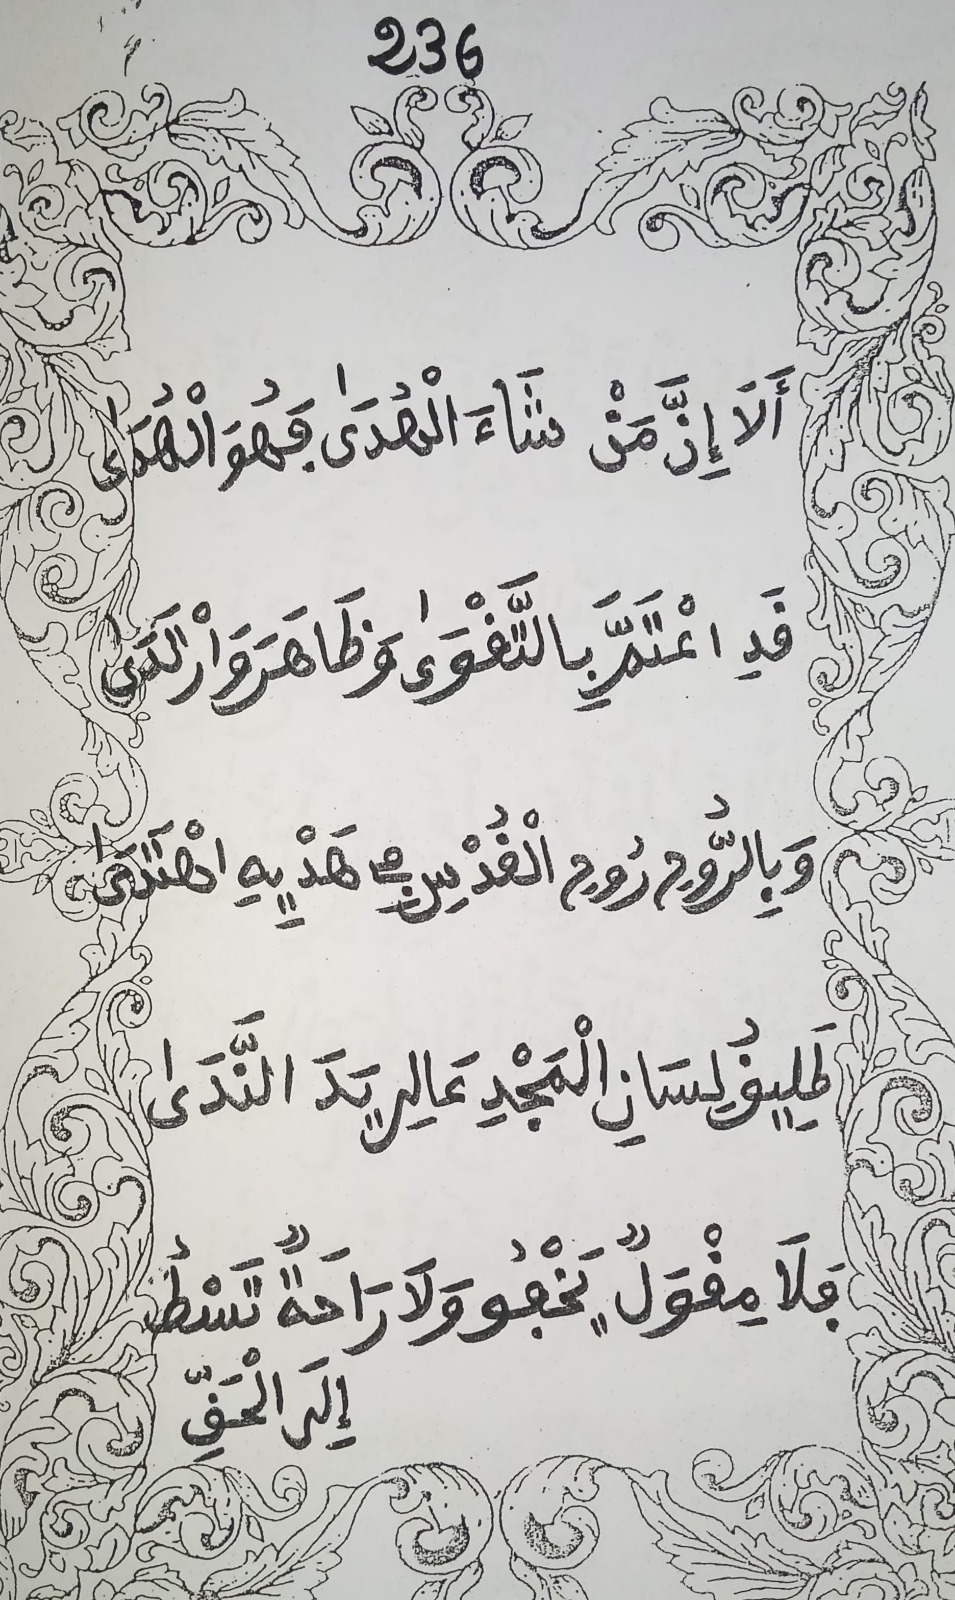 236
أَلَا إِنَّ مَنْ شَاءَ الْهُدَىٰ فَهُوَ الْهُدَىٰ
قَدِ اعْتَمَّ بِالتَّقْوَىٰ وَظَاهَرَ وَارْتَدَىٰ
وَبِالرُّوحِ رُوحِ الْقُدْسِ فِي هَدْيِهِ اهْتَدَىٰ
طَلِيقُ لِسَانِ الْمَجْدِ عَالِي يَدَ النَّدَىٰ
فَلَا مِقْوَلٌ وَلَا رَاحَةٌ تَسْطُو
إِلَى الْحَقِّ